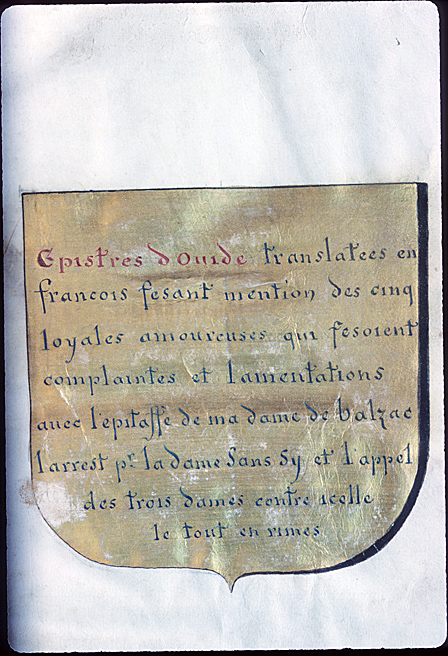 Epistres dOuide translatees en
francois fesant mention des cinq
loyales amoureuses qui fesoient
complaintes et lamentations
auec l'epitaffe de ma dame de balzac
l'arrest pr la dame Sans Sy et l'appel
des trois dames contre icelle
le tout en rimes